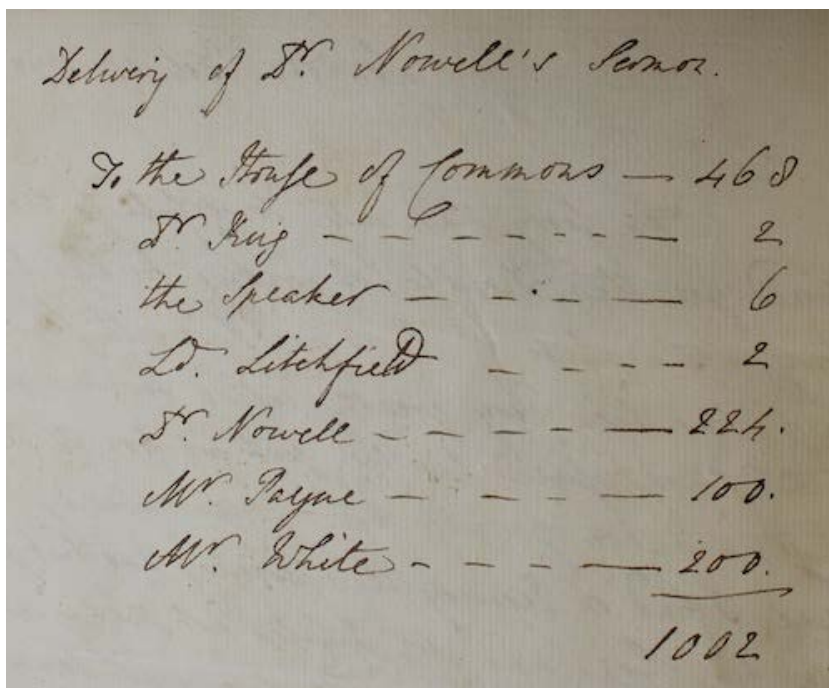 Delivery of Dr. Nowell's Sermon.
To the House of Commons — 468
Dr King - - - - - - — 2
the Speaker - - - - — 6
Ld. Litchfield - - - - 2
Dr. Nowell - - - - - — 224.
Mr. Payne - - - - — 100.
Mr. White - - - - — 200.
1002